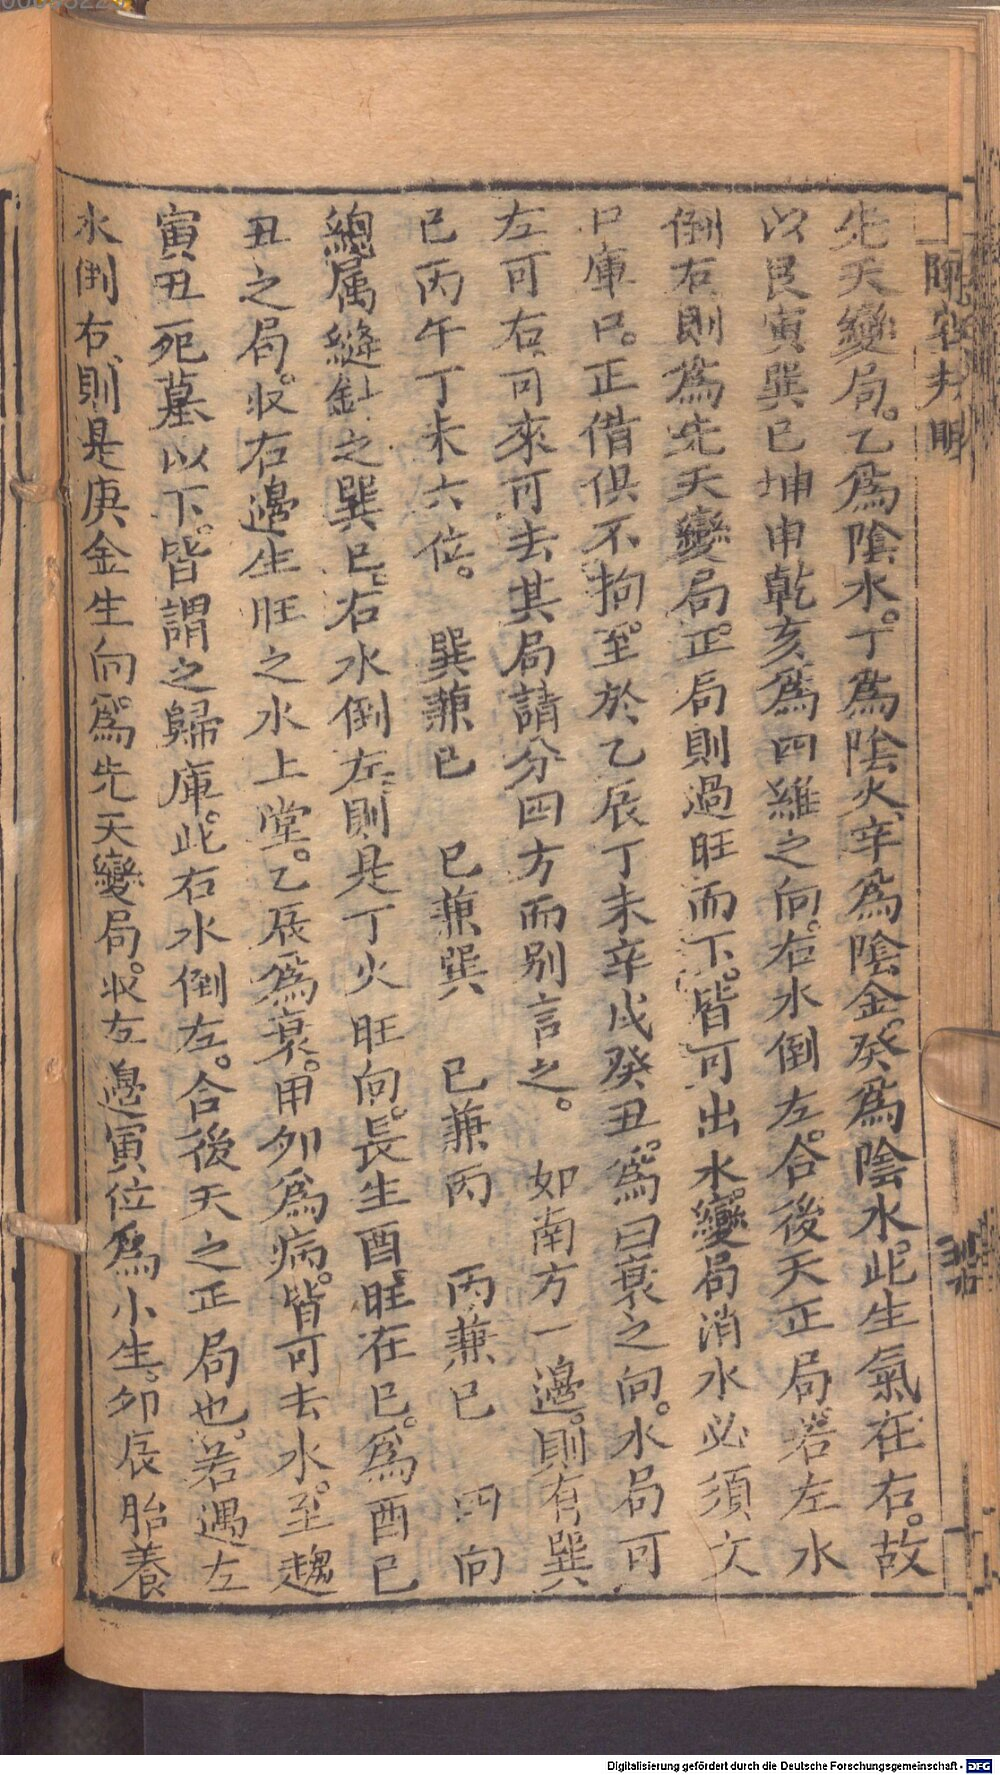 先天變局。乙爲陰水。丁爲陰火。辛爲陰金。癸爲陰水。此生氣在右。故
以艮寅巽巳坤申乾亥爲四維之向。右水倒左。合後天正局。若左水
倒右則爲先天變局。正局則過旺而下。皆可出水。變局消水必須文
口庫口。正借俱不拘。至於乙辰丁未辛戌癸丑。爲曰衰之向。水局可
左可右。可來可去其局請分四方而别言之。 如南方一邊。則有巽
巳丙午丁未六位。 巽兼巳 巳兼巽 巳兼丙 丙兼巳 四向
總属縫針之巽巳。右水倒左。則是丁火旺向。長生酉。旺在巳。爲酉巳
丑之局。収右邊生旺之水上堂。乙辰爲衰。甲夘爲病。皆可去水。至趨
寅丑死墓以下。皆謂之歸庫。此右水倒左。合後天之正局也。若遇左
水倒右。則是庚金生向。爲先天變局。収左邊寅位爲小生。夘辰胎養
Digitalisierung gefördert durch die Deutsche Forschungsgemeinschaft - DFG